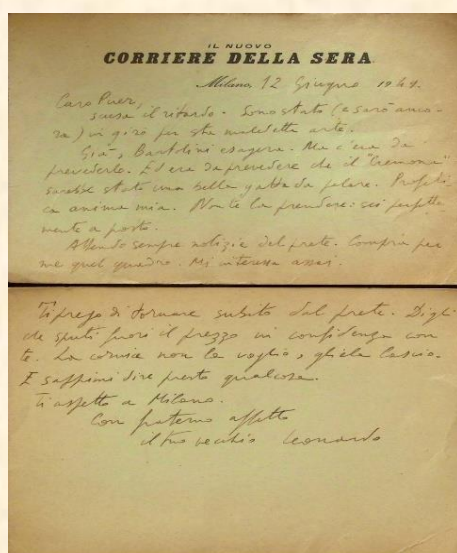 IL NUOVO
CORRIERE DELLA SERA
Milano, 12 Giugno 1948.
Caro Puer,
scusa il ritardo. Sono stato (e sarò anco-
ra) in giro per sta maledetta arte.
Già, Bartolini esagera. Ma c'era da
prevederlo. Ed era da prevedere che il "Cremona"
sarebbe stato una bella gatta da pelare. Profeti-
ca anima mia. Non te la prendere: sei perfetta
mente a posto.
Attendo sempre notizie del prete. Compra per
me quel quadro. Mi interessa assai.
Ti prego di tornare subito dal prete. Digli
che sputi fuori il prezzo in confidenza con
te. La cornice non la voglio, gliela lascio.
E sappimi dire presto qualcosa.
Ti aspetto a Milano.
Con fraterno affetto
il tuo vecchio Leonardo